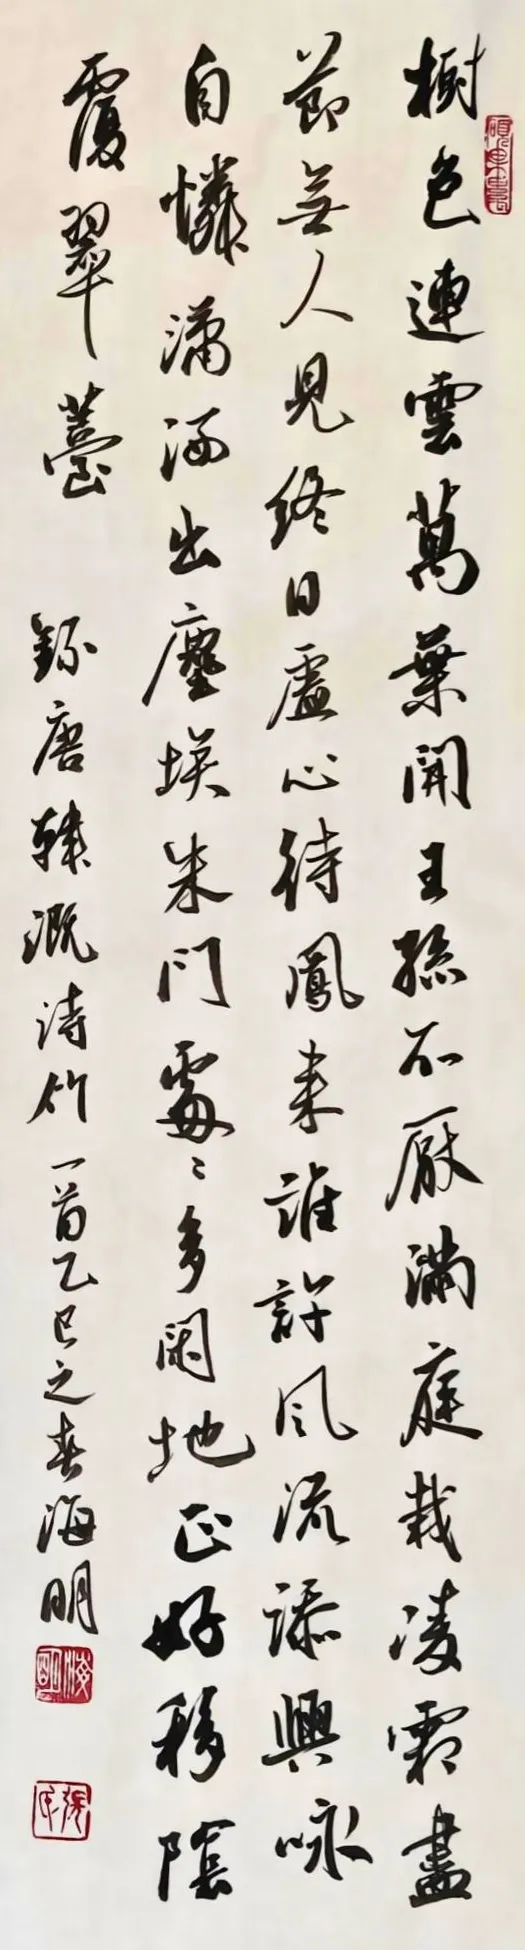 樹色連雲萬葉開王孫不厭滿庭栽凌霜盡
節無人見終日虛心待鳳來誰許風流添興咏
自憐瀟洒出塵埃朱門處〻多閑地正好移陰
覆翠薹
錄唐韓溉詩竹一首乙巳之春海明
海明